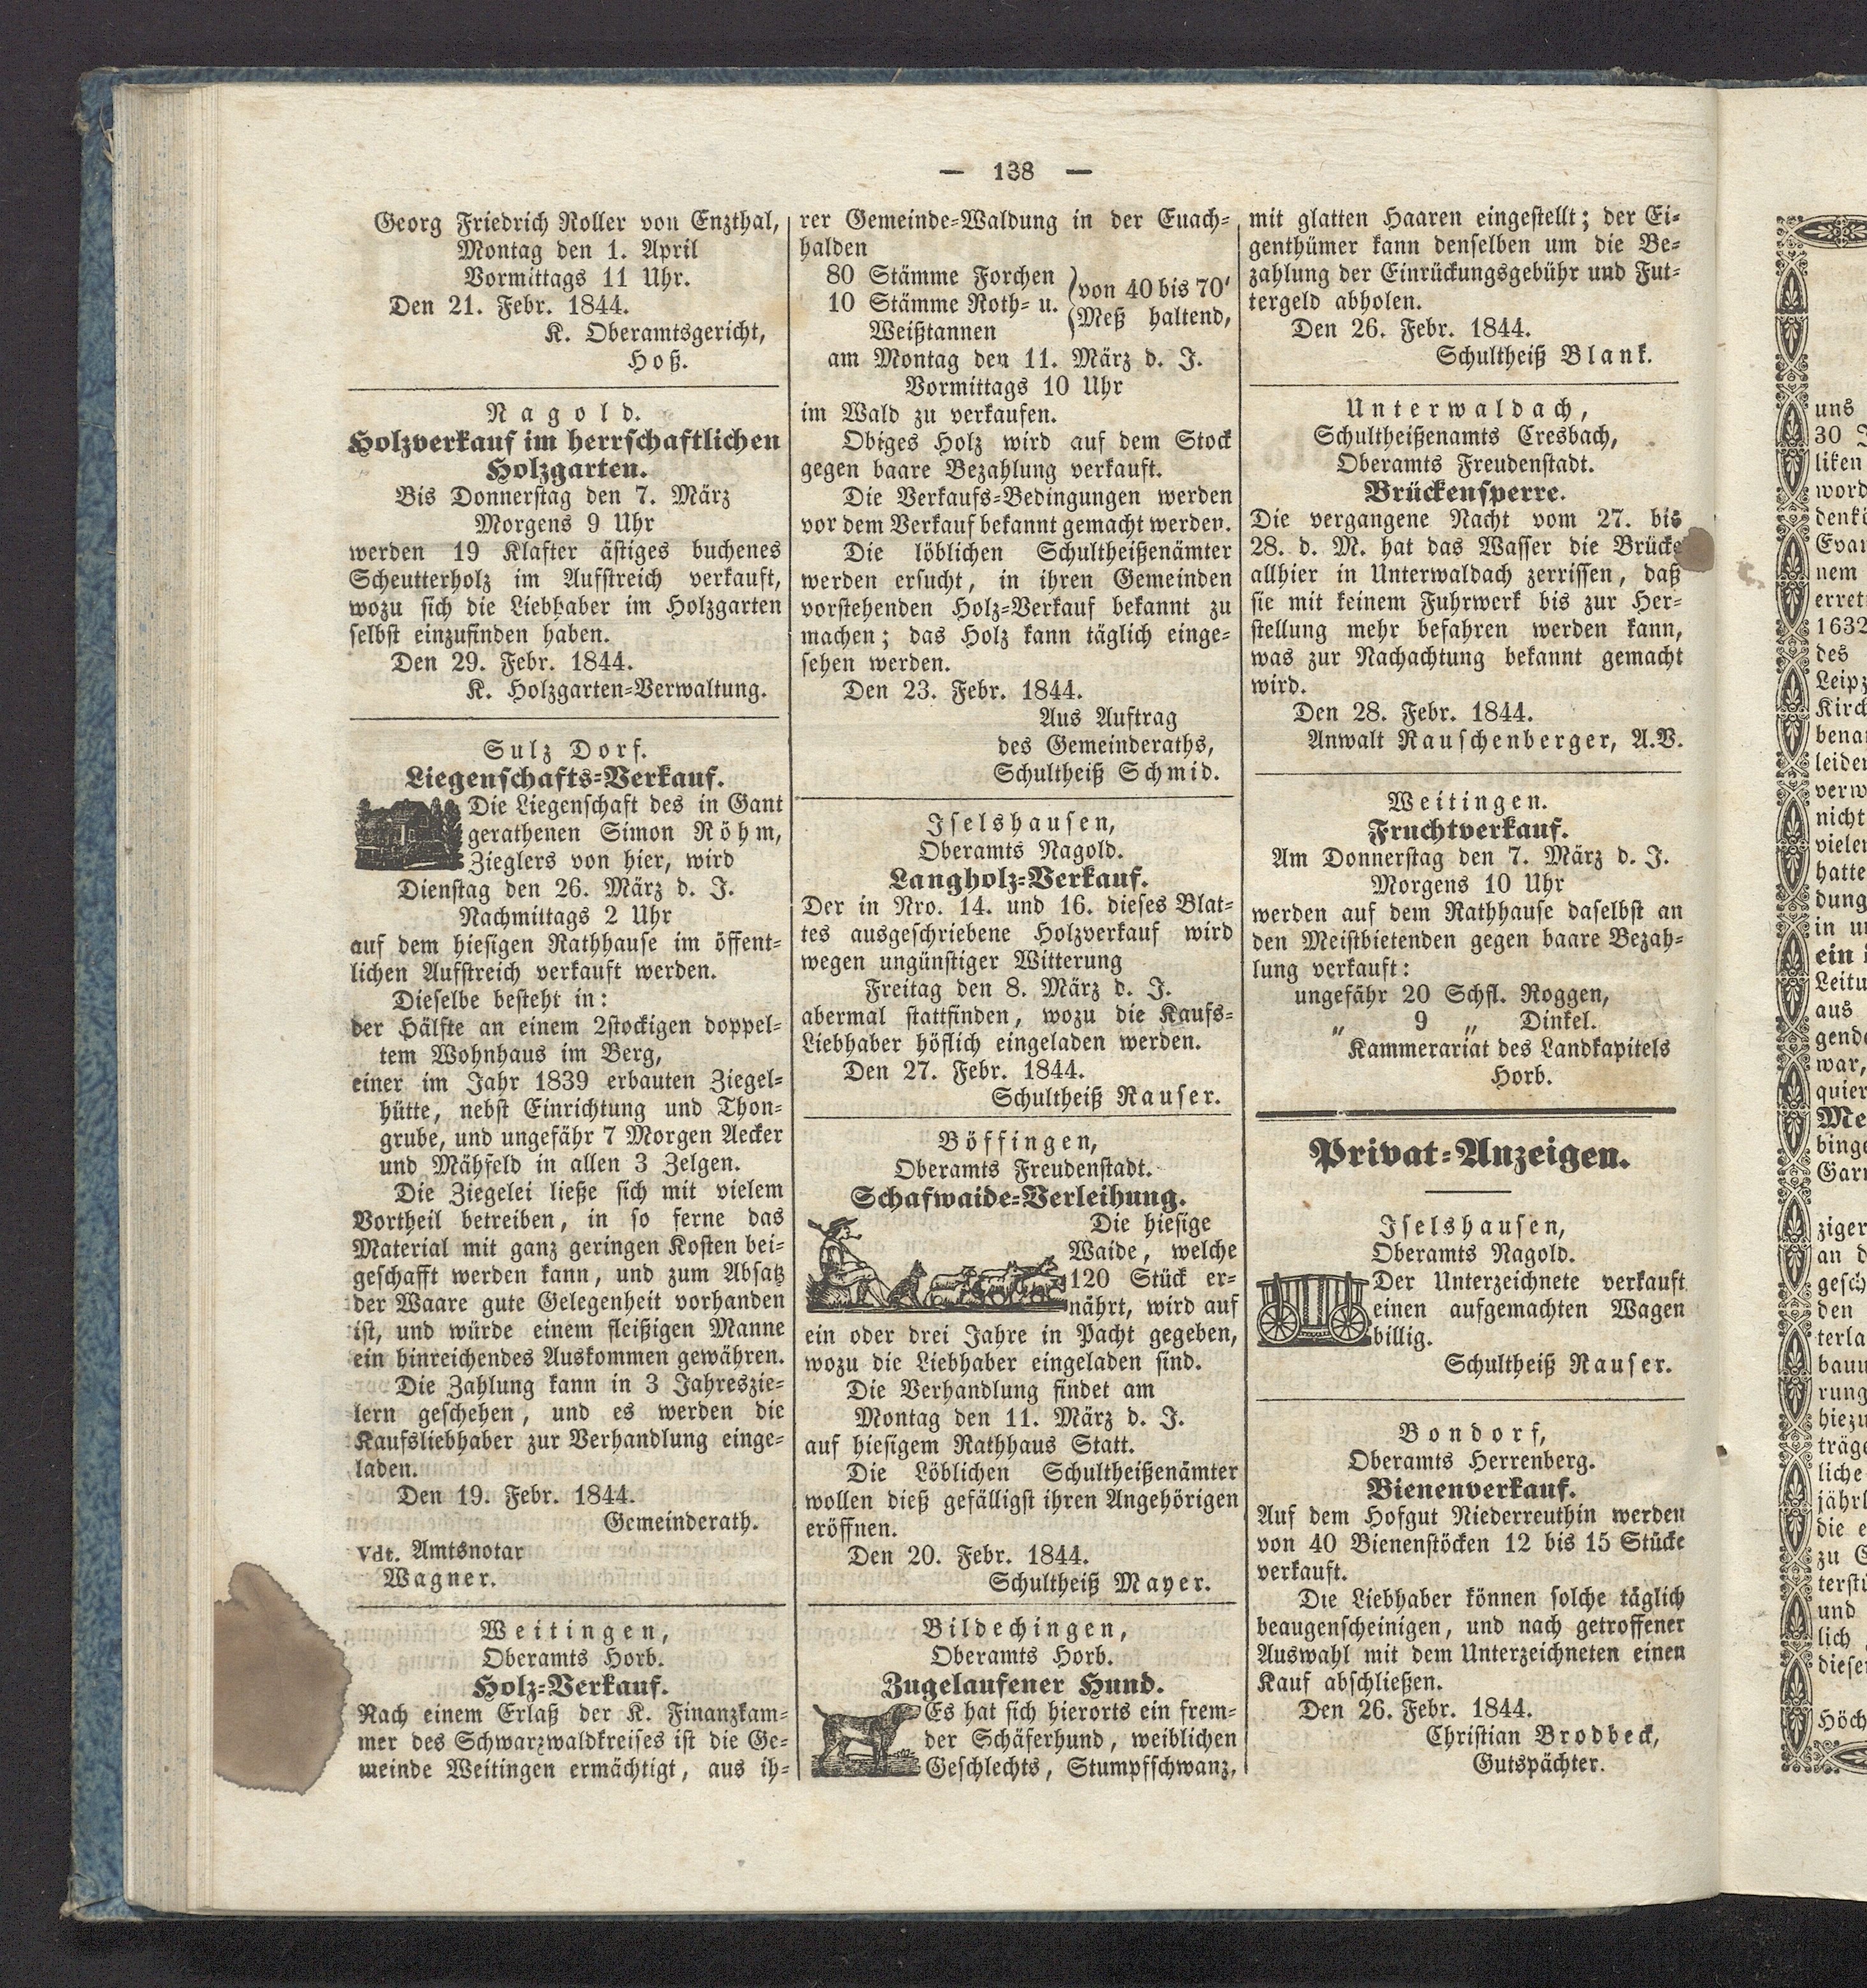 — 138 —
Georg Friedrich Roller von Enzthal,
Montag den 1. April
Vormittags 11 Uhr.
Den 21. Febr. 1844.
K. Oberamtsgericht,
Hoß.
Nagold.
Holzverkauf im herrschaftlichen
Holzgarten.
Bis Donnerstag den 7. März
Morgens 9 Uhr
werden 19 Klafter ästiges buchenes
Scheutterholz im Aufstreich verkauft,
wozu sich die Liebhaber im Holzgarten
selbst einzufinden haben.
Den 29. Febr. 1844.
K. Holzgarten-Verwaltung.
Sulz Dorf.
Liegenschafts-Verkauf.
Die Liegenschaft des in Gant
gerathenen Simon Röhm,
Zieglers von hier, wird
Dienstag den 26. März d. J.
Nachmittags 2 Uhr
auf dem hiesigen Rathhause im öffent-
lichen Aufstreich verkauft werden.
Dieselbe besteht in:
der Hälfte an einem 2stockigen doppel-
tem Wohnhaus im Berg,
einer im Jahr 1839 erbauten Ziegel-
hütte, nebst Einrichtung und Thon-
grube, und ungefähr 7 Morgen Aecker
und Mähfeld in allen 3 Zelgen.
Die Ziegelei ließe sich mit vielem
Vortheil betreiben, in so ferne das
Material mit ganz geringen Kosten bei-
geschafft werden kann, und zum Absatz
der Waare gute Gelegenheit vorhanden
ist, und würde einem fleißigen Manne
ein hinreichendes Auskommen gewähren.
Die Zahlung kann in 3 Jahreszie-
lern geschehen, und es werden die
Kaufsliebhaber zur Verhandlung einge-
laden.
Den 19. Febr. 1844.
Gemeinderath.
Vdt. Amtsnotar
Wagner.
Weitingen,
Oberamts Horb.
Holz-Verkauf.
Nach einem Erlaß der K. Finanzkam-
mer des Schwarzwaldkreises ist die Ge-
meinde Weitingen ermächtigt, aus ih-
rer Gemeinde-Waldung in der Euach-
halden
80 Stämme Forchen
10 Stämme Roth- u.
Weißtannen
von 40 bis 70'
Meß haltend,
am Montag den 11. März d. J.
Vormittags 10 Uhr
im Wald zu verkaufen.
Obiges Holz wird auf dem Stock
gegen baare Bezahlung verkauft.
Die Verkaufs-Bedingungen werden
vor dem Verkauf bekannt gemacht werden.
Die löblichen Schultheißenämter
werden ersucht, in ihren Gemeinden
vorstehenden Holz-Verkauf bekannt zu
machen; das Holz kann täglich einge-
sehen werden.
Den 23. Febr. 1844.
Aus Auftrag
des Gemeinderaths,
Schultheiß Schmid.
Iselshausen,
Oberamts Nagold.
Langholz-Verkauf.
Der in Nro. 14. und 16. dieses Blat-
tes ausgeschriebene Holzverkauf wird
wegen ungünstiger Witterung
Freitag den 8. März d. J.
abermal stattfinden, wozu die Kaufs-
Liebhaber höflich eingeladen werden.
Den 27. Febr. 1844.
Schultheiß Rauser.
Böffingen,
Oberamts Freudenstadt.
Schafwaide-Verleihung.
Die hiesige
Waide, welche
120 Stück er-
nährt, wird auf
ein oder drei Jahre in Pacht gegeben,
wozu die Liebhaber eingeladen sind.
Die Verhandlung findet am
Montag den 11. März d. J.
auf hiesigem Rathhaus Statt.
Die Löblichen Schultheißenämter
wollen dieß gefälligst ihren Angehörigen
eröffnen.
Den 20. Febr. 1844.
Schultheiß Mayer.
Bildechingen,
Oberamts Horb.
Zugelaufener Hund.
Es hat sich hierorts ein frem-
der Schäferhund, weiblichen
Geschlechts, Stumpfschwanz,
mit glatten Haaren eingestellt; der Ei-
genthümer kann denselben um die Be-
zahlung der Einrückungsgebühr und Fut-
tergeld abholen.
Den 26. Febr. 1844.
Schultheiß Blank.
Unterwaldach,
Schultheißenamts Cresbach,
Oberamts Freudenstadt.
Brückensperre.
Die vergangene Nacht vom 27. bis
28. d. M. hat das Wasser die Brücke
allhier in Unterwaldach zerrissen, daß
sie mit keinem Fuhrwerk bis zur Her-
stellung mehr befahren werden kann,
was zur Nachachtung bekannt gemacht
wird.
Den 28. Febr. 1844.
Anwalt Rauschenberger, A.V.
Weitingen.
Fruchtverkauf.
Am Donnerstag den 7. März d. J.
Morgens 10 Uhr
werden auf dem Rathhause daselbst an
den Meistbietenden gegen baare Bezah-
lung verkauft:
ungefähr 20 Schfl. Roggen,
„ 9 „ Dinkel.
Kammerariat des Landkapitels
Horb.
Privat-Anzeigen.
Iselshausen,
Oberamts Nagold.
Der Unterzeichnete verkauft
einen aufgemachten Wagen
billig.
Schultheiß Rauser.
Bondorf,
Oberamts Herrenberg.
Bienenverkauf.
Auf dem Hofgut Niederreuthin werden
von 40 Bienenstöcken 12 bis 15 Stücke
verkauft.
Die Liebhaber können solche täglich
beaugenscheinigen, und nach getroffener
Auswahl mit dem Unterzeichneten einen
Kauf abschließen.
Den 26. Febr. 1844.
Christian Brodbeck,
Gutspächter.
uns
30
liken
word
nem
1632
des
war,
ein
aus
an
den
die
zu
und
lich